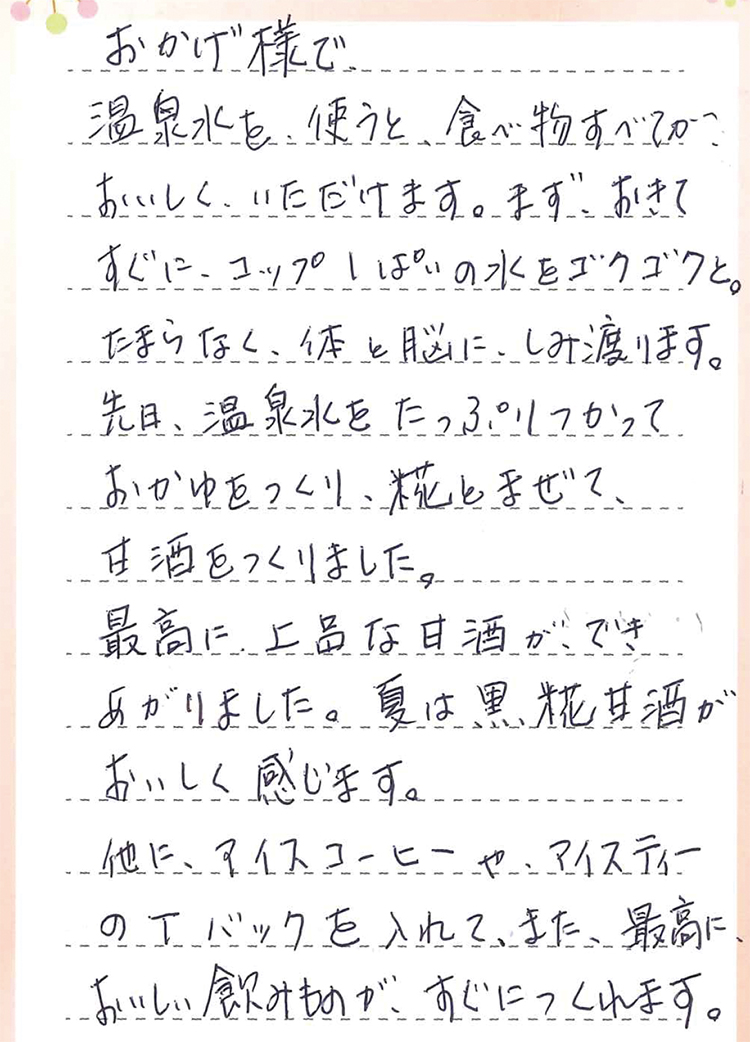 おかげ様で、
温泉水を、使うと、食べ物すべてが、
おいしく、いただけます。まず、おきて
すぐに、コップ1ぱいの水をゴクゴクと。
たまらなく、体と脳に、しみ渡ります。
先日、温泉水をたっぷりつかって
おかゆをつくり、糀とまぜて、
甘酒をつくりました。
最高に、上品な甘酒が、でき
あがりました。夏は黒糀甘酒が
おいしく感じます。
他に、アイスコーヒーや、アイスティー
のTバックを入れて、また、最高に、
おいしい飲みものが、すぐにつくれます。